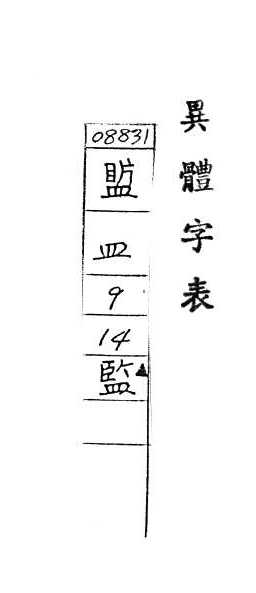 異體字表
08831
皿
9
14
監▲